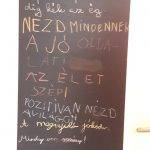 dig kék az ég
NÉZD MINDENNEK
A JÓ OLDA-
LÁT!
AZ ÉLET
SZÉP!
POZITÍVAN NÉZD
A VILÁGOT
A megnyílt
Mindig van remény!